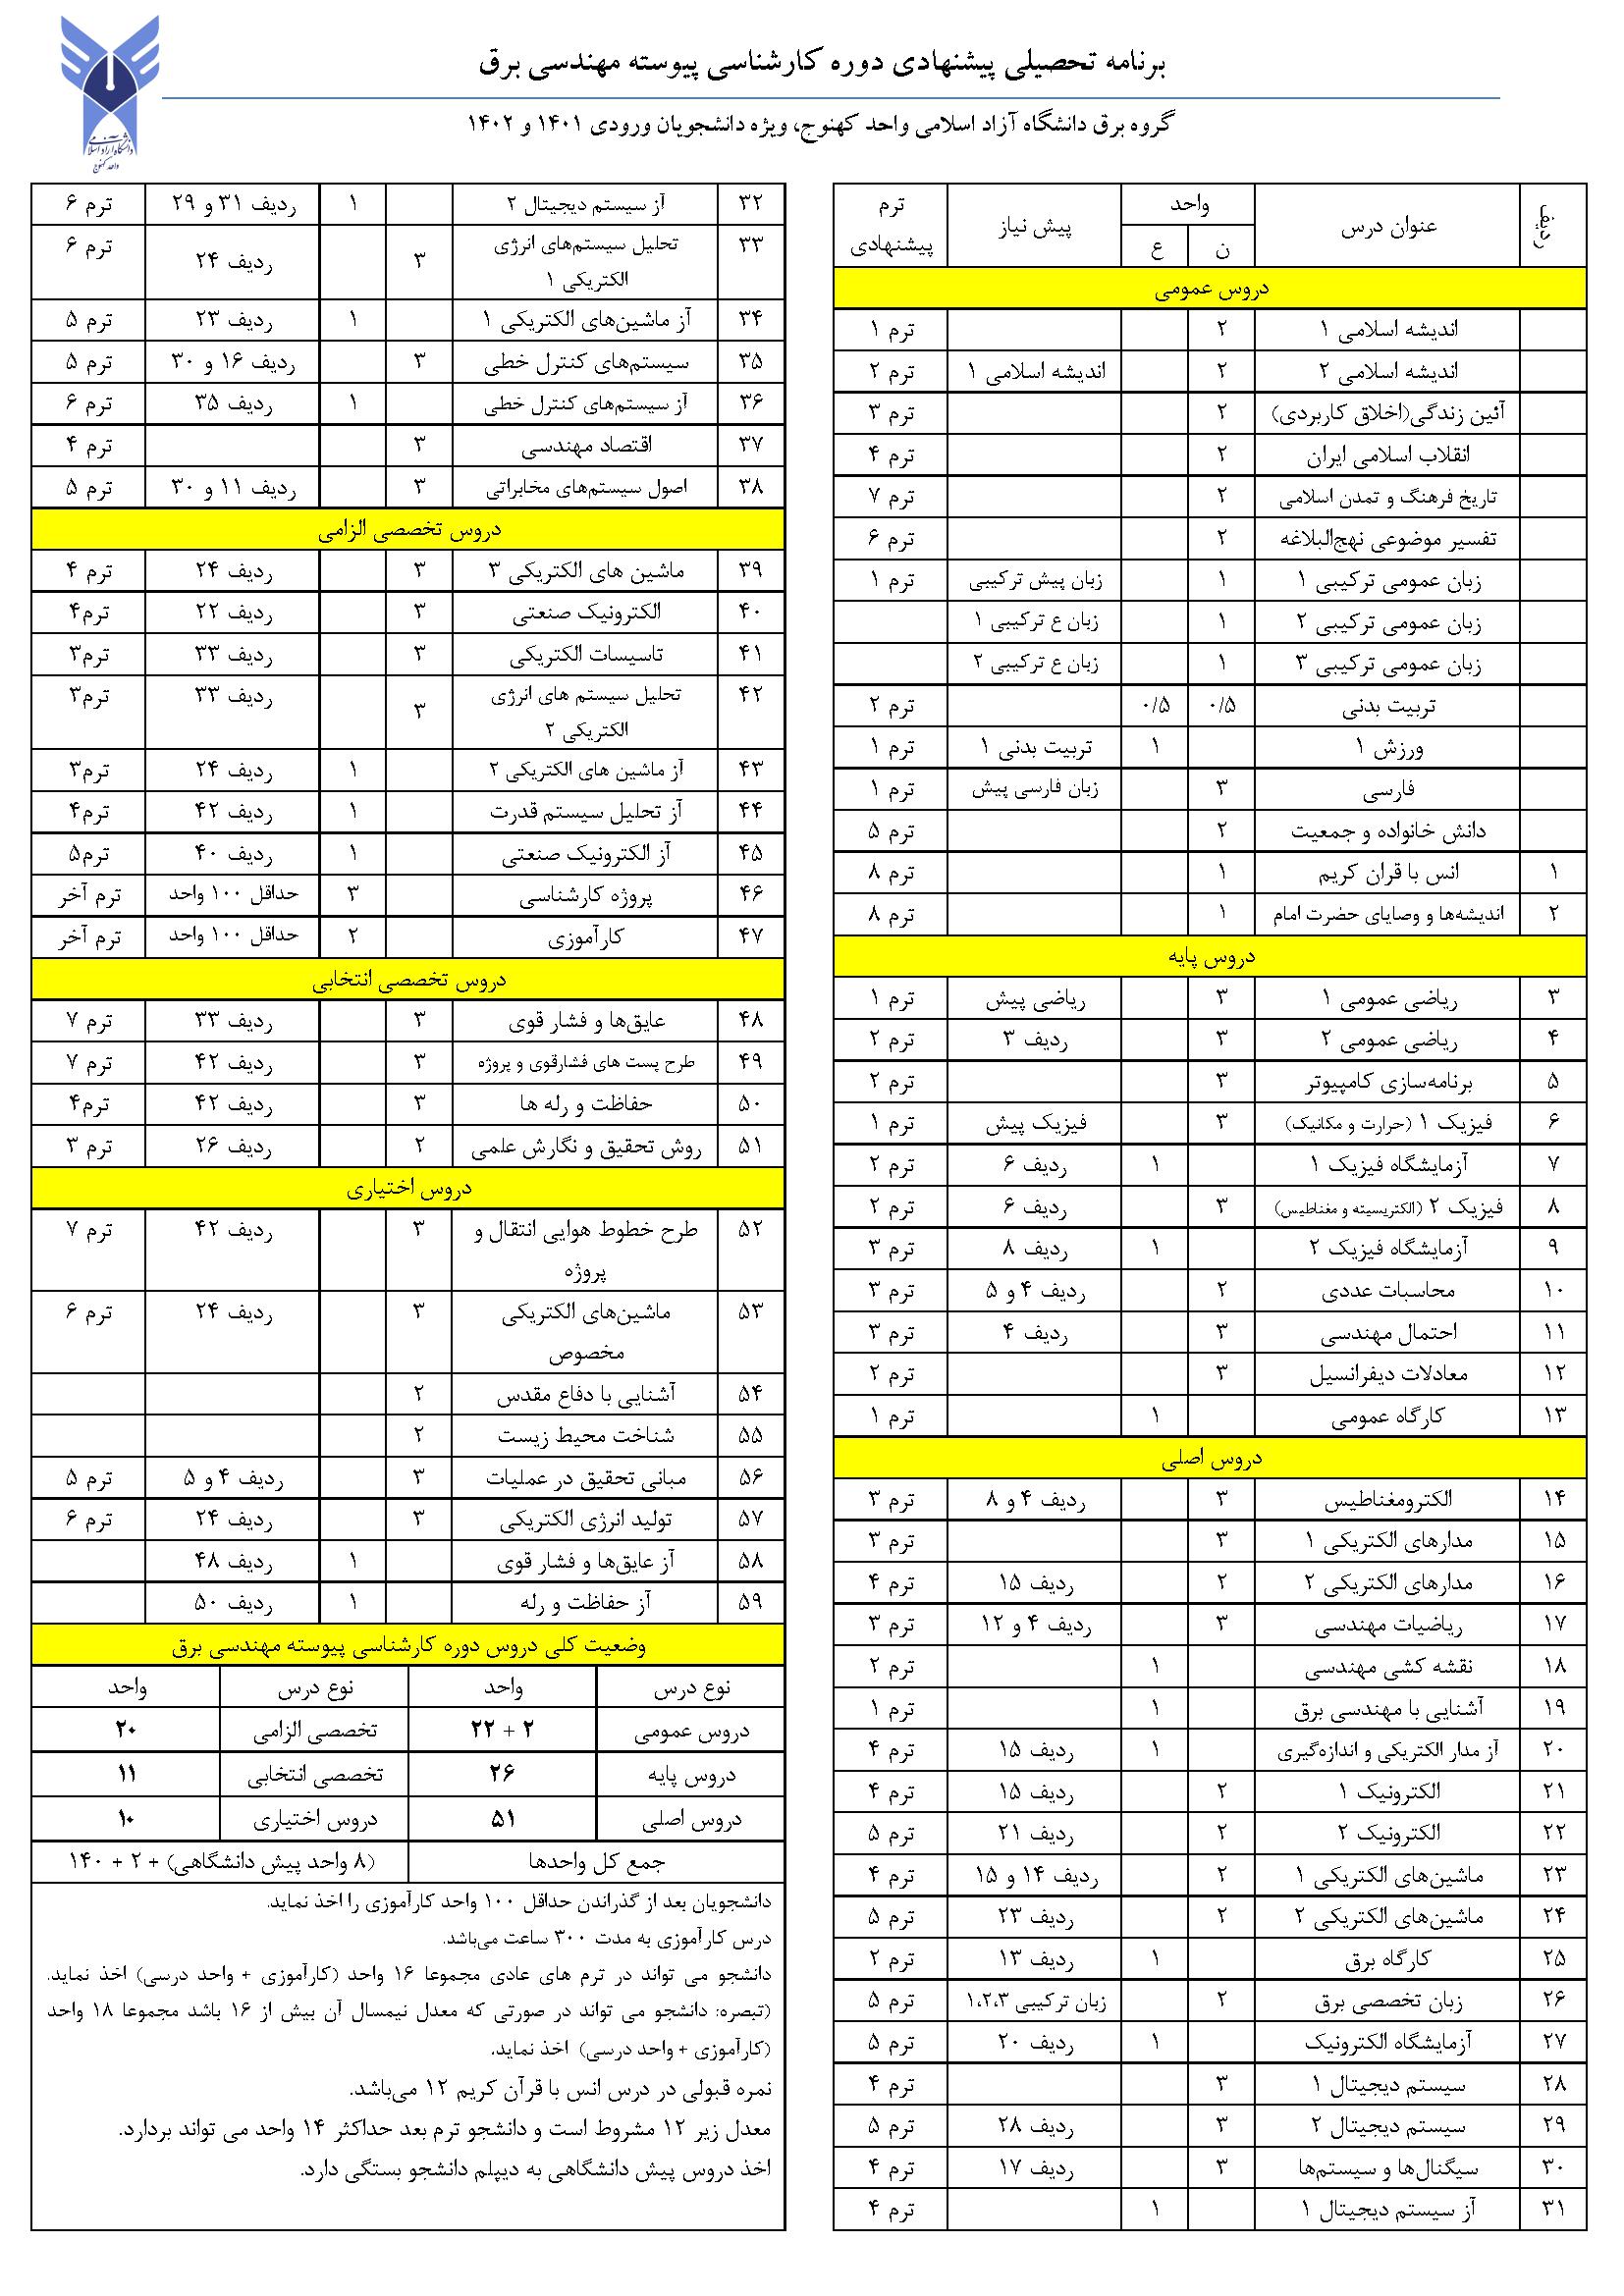 برنامه تحصیلی پیشنهادی دوره کارشناسی پیوسته مهندسی برق
گروه برق دانشگاه آزاد اسلامی واحد کهنوج، ویژه دانشجویان ورودی ۱۴۰۱ و ۱۴۰۲
دانشگاه آزاد اسلامی
واحد کهنوج
ردیف عنوان درس واحد پیش نیاز ترم پیشنهادی
ن ع
دروس عمومی
اندیشه اسلامی ۱ ۲ ترم ۱
اندیشه اسلامی ۲ ۲ اندیشه اسلامی ۱ ترم ۲
آئین زندگی(اخلاق کاربردی) ۲ ترم ۳
انقلاب اسلامی ایران ۲ ترم ۴
تاریخ فرهنگ و تمدن اسلامی ۲ ترم ۷
تفسیر موضوعی نهج‌البلاغه ۲ ترم ۶
زبان عمومی ترکیبی ۱ ۱ زبان پیش ترکیبی ترم ۱
زبان عمومی ترکیبی ۲ ۱ زبان ع ترکیبی ۱
زبان عمومی ترکیبی ۳ ۱ زبان ع ترکیبی ۲
تربیت بدنی ۰/۵ ۰/۵ ترم ۲
ورزش ۱ ۱ تربیت بدنی ۱ ترم ۱
فارسی ۳ زبان فارسی پیش ترم ۱
دانش خانواده و جمعیت ۲ ترم ۵
۱ انس با قران کریم ۱ ترم ۸
۲ اندیشه‌ها و وصایای حضرت امام ۱ ترم ۸
دروس پایه
۳ ریاضی عمومی ۱ ۳ ریاضی پیش ترم ۱
۴ ریاضی عمومی ۲ ۳ ردیف ۳ ترم ۲
۵ برنامه‌سازی کامپیوتر ۳ ترم ۲
۶ فیزیک ۱ (حرارت و مکانیک) ۳ فیزیک پیش ترم ۱
۷ آزمایشگاه فیزیک ۱ ۱ ردیف ۶ ترم ۲
۸ فیزیک ۲ (الکتریسیته و مغناطیس) ۳ ردیف ۶ ترم ۲
۹ آزمایشگاه فیزیک ۲ ۱ ردیف ۸ ترم ۳
۱۰ محاسبات عددی ۲ ردیف ۴ و ۵ ترم ۳
۱۱ احتمال مهندسی ۳ ردیف ۴ ترم ۳
۱۲ معادلات دیفرانسیل ۳ ترم ۲
۱۳ کارگاه عمومی ۱ ترم ۱
دروس اصلی
۱۴ الکترومغناطیس ۳ ردیف ۴ و ۸ ترم ۳
۱۵ مدارهای الکتریکی ۱ ۳ ترم ۳
۱۶ مدارهای الکتریکی ۲ ۲ ردیف ۱۵ ترم ۴
۱۷ ریاضیات مهندسی ۳ ردیف ۴ و ۱۲ ترم ۳
۱۸ نقشه کشی مهندسی ۱ ترم ۲
۱۹ آشنایی با مهندسی برق ۱ ترم ۱
۲۰ آز مدار الکتریکی و اندازه‌گیری ۱ ردیف ۱۵ ترم ۴
۲۱ الکترونیک ۱ ۲ ردیف ۱۵ ترم ۴
۲۲ الکترونیک ۲ ۲ ردیف ۲۱ ترم ۵
۲۳ ماشین‌های الکتریکی ۱ ۲ ردیف ۱۴ و ۱۵ ترم ۴
۲۴ ماشین‌های الکتریکی ۲ ۲ ردیف ۲۳ ترم ۵
۲۵ کارگاه برق ۱ ردیف ۱۳ ترم ۲
۲۶ زبان تخصصی برق ۲ زبان ترکیبی ۱،۲،۳ ترم ۵
۲۷ آزمایشگاه الکترونیک ۱ ردیف ۲۰ ترم ۵
۲۸ سیستم دیجیتال ۱ ۳ ترم ۴
۲۹ سیستم دیجیتال ۲ ۳ ردیف ۲۸ ترم ۵
۳۰ سیگنال‌ها و سیستم‌ها ۳ ردیف ۱۷ ترم ۴
۳۱ آز سیستم دیجیتال ۱ ۱ ترم ۴
۳۲ آز سیستم دیجیتال ۲ ۱ ردیف ۳۱ و ۲۹ ترم ۶
۳۳ تحلیل سیستم‌های انرژی ۳ ردیف ۲۴ ترم ۶
الکتریکی ۱
۳۴ آز ماشین‌های الکتریکی ۱ ۱ ردیف ۲۳ ترم ۵
۳۵ سیستم‌های کنترل خطی ۳ ردیف ۱۶ و ۳۰ ترم ۵
۳۶ آز سیستم‌های کنترل خطی ۱ ردیف ۳۵ ترم ۶
۳۷ اقتصاد مهندسی ۳ ترم ۴
۳۸ اصول سیستم‌های مخابراتی ۳ ردیف ۱۱ و ۳۰ ترم ۵
دروس تخصصی الزامی
۳۹ ماشین های الکتریکی ۳ ۳ ردیف ۲۴ ترم ۴
۴۰ الکترونیک صنعتی ۳ ردیف ۲۲ ترم۴
۴۱ تاسیسات الکتریکی ۳ ردیف ۳۳ ترم۳
۴۲ تحلیل سیستم های انرژی ۳ ردیف ۳۳ ترم۳
الکتریکی ۲
۴۳ آز ماشین های الکتریکی ۲ ۱ ردیف ۲۴ ترم۳
۴۴ آز تحلیل سیستم قدرت ۱ ردیف ۴۲ ترم۴
۴۵ آز الکترونیک صنعتی ۱ ردیف ۴۰ ترم۵
۴۶ پروژه کارشناسی ۳ حداقل ۱۰۰ واحد ترم آخر
۴۷ کارآموزی ۲ حداقل ۱۰۰ واحد ترم آخر
دروس تخصصی انتخابی
۴۸ عایق‌ها و فشار قوی ۳ ردیف ۳۳ ترم ۷
۴۹ طرح پست های فشارقوی و پروژه ۳ ردیف ۴۲ ترم ۷
۵۰ حفاظت و رله ها ۳ ردیف ۴۲ ترم۴
۵۱ روش تحقیق و نگارش علمی ۲ ردیف ۲۶ ترم ۳
دروس اختیاری
۵۲ طرح خطوط هوایی انتقال و ۳ ردیف ۴۲ ترم ۷
پروژه
۵۳ ماشین‌های الکتریکی ۳ ردیف ۲۴ ترم ۶
مخصوص
۵۴ آشنایی با دفاع مقدس ۲
۵۵ شناخت محیط زیست ۲
۵۶ مبانی تحقیق در عملیات ۳ ردیف ۴ و ۵ ترم ۵
۵۷ تولید انرژی الکتریکی ۳ ردیف ۲۴ ترم ۶
۵۸ آز عایق‌ها و فشار قوی ۱ ردیف ۴۸
۵۹ آز حفاظت و رله ۱ ردیف ۵۰
وضعیت کلی دروس دوره کارشناسی پیوسته مهندسی برق
نوع درس واحد نوع درس واحد
دروس عمومی ۲ + ۲۲ تخصصی الزامی ۲۰
دروس پایه ۲۶ تخصصی انتخابی ۱۱
دروس اصلی ۵۱ دروس اختیاری ۱۰
جمع کل واحدها (۸ واحد پیش دانشگاهی) + ۲ + ۱۴۰
دانشجویان بعد از گذراندن حداقل ۱۰۰ واحد کارآموزی را اخذ نماید.
درس کارآموزی به مدت ۳۰۰ ساعت می‌باشد.
دانشجو می تواند در ترم های عادی مجموعا ۱۶ واحد (کارآموزی + واحد درسی) اخذ نماید.
(تبصره: دانشجو می تواند در صورتی که معدل نیمسال آن بیش از ۱۶ باشد مجموعا ۱۸ واحد
(کارآموزی + واحد درسی) اخذ نماید.
نمره قبولی در درس انس با قرآن کریم ۱۲ می‌باشد.
معدل زیر ۱۲ مشروط است و دانشجو ترم بعد حداکثر ۱۴ واحد می تواند بردارد.
اخذ دروس پیش دانشگاهی به دیپلم دانشجو بستگی دارد.